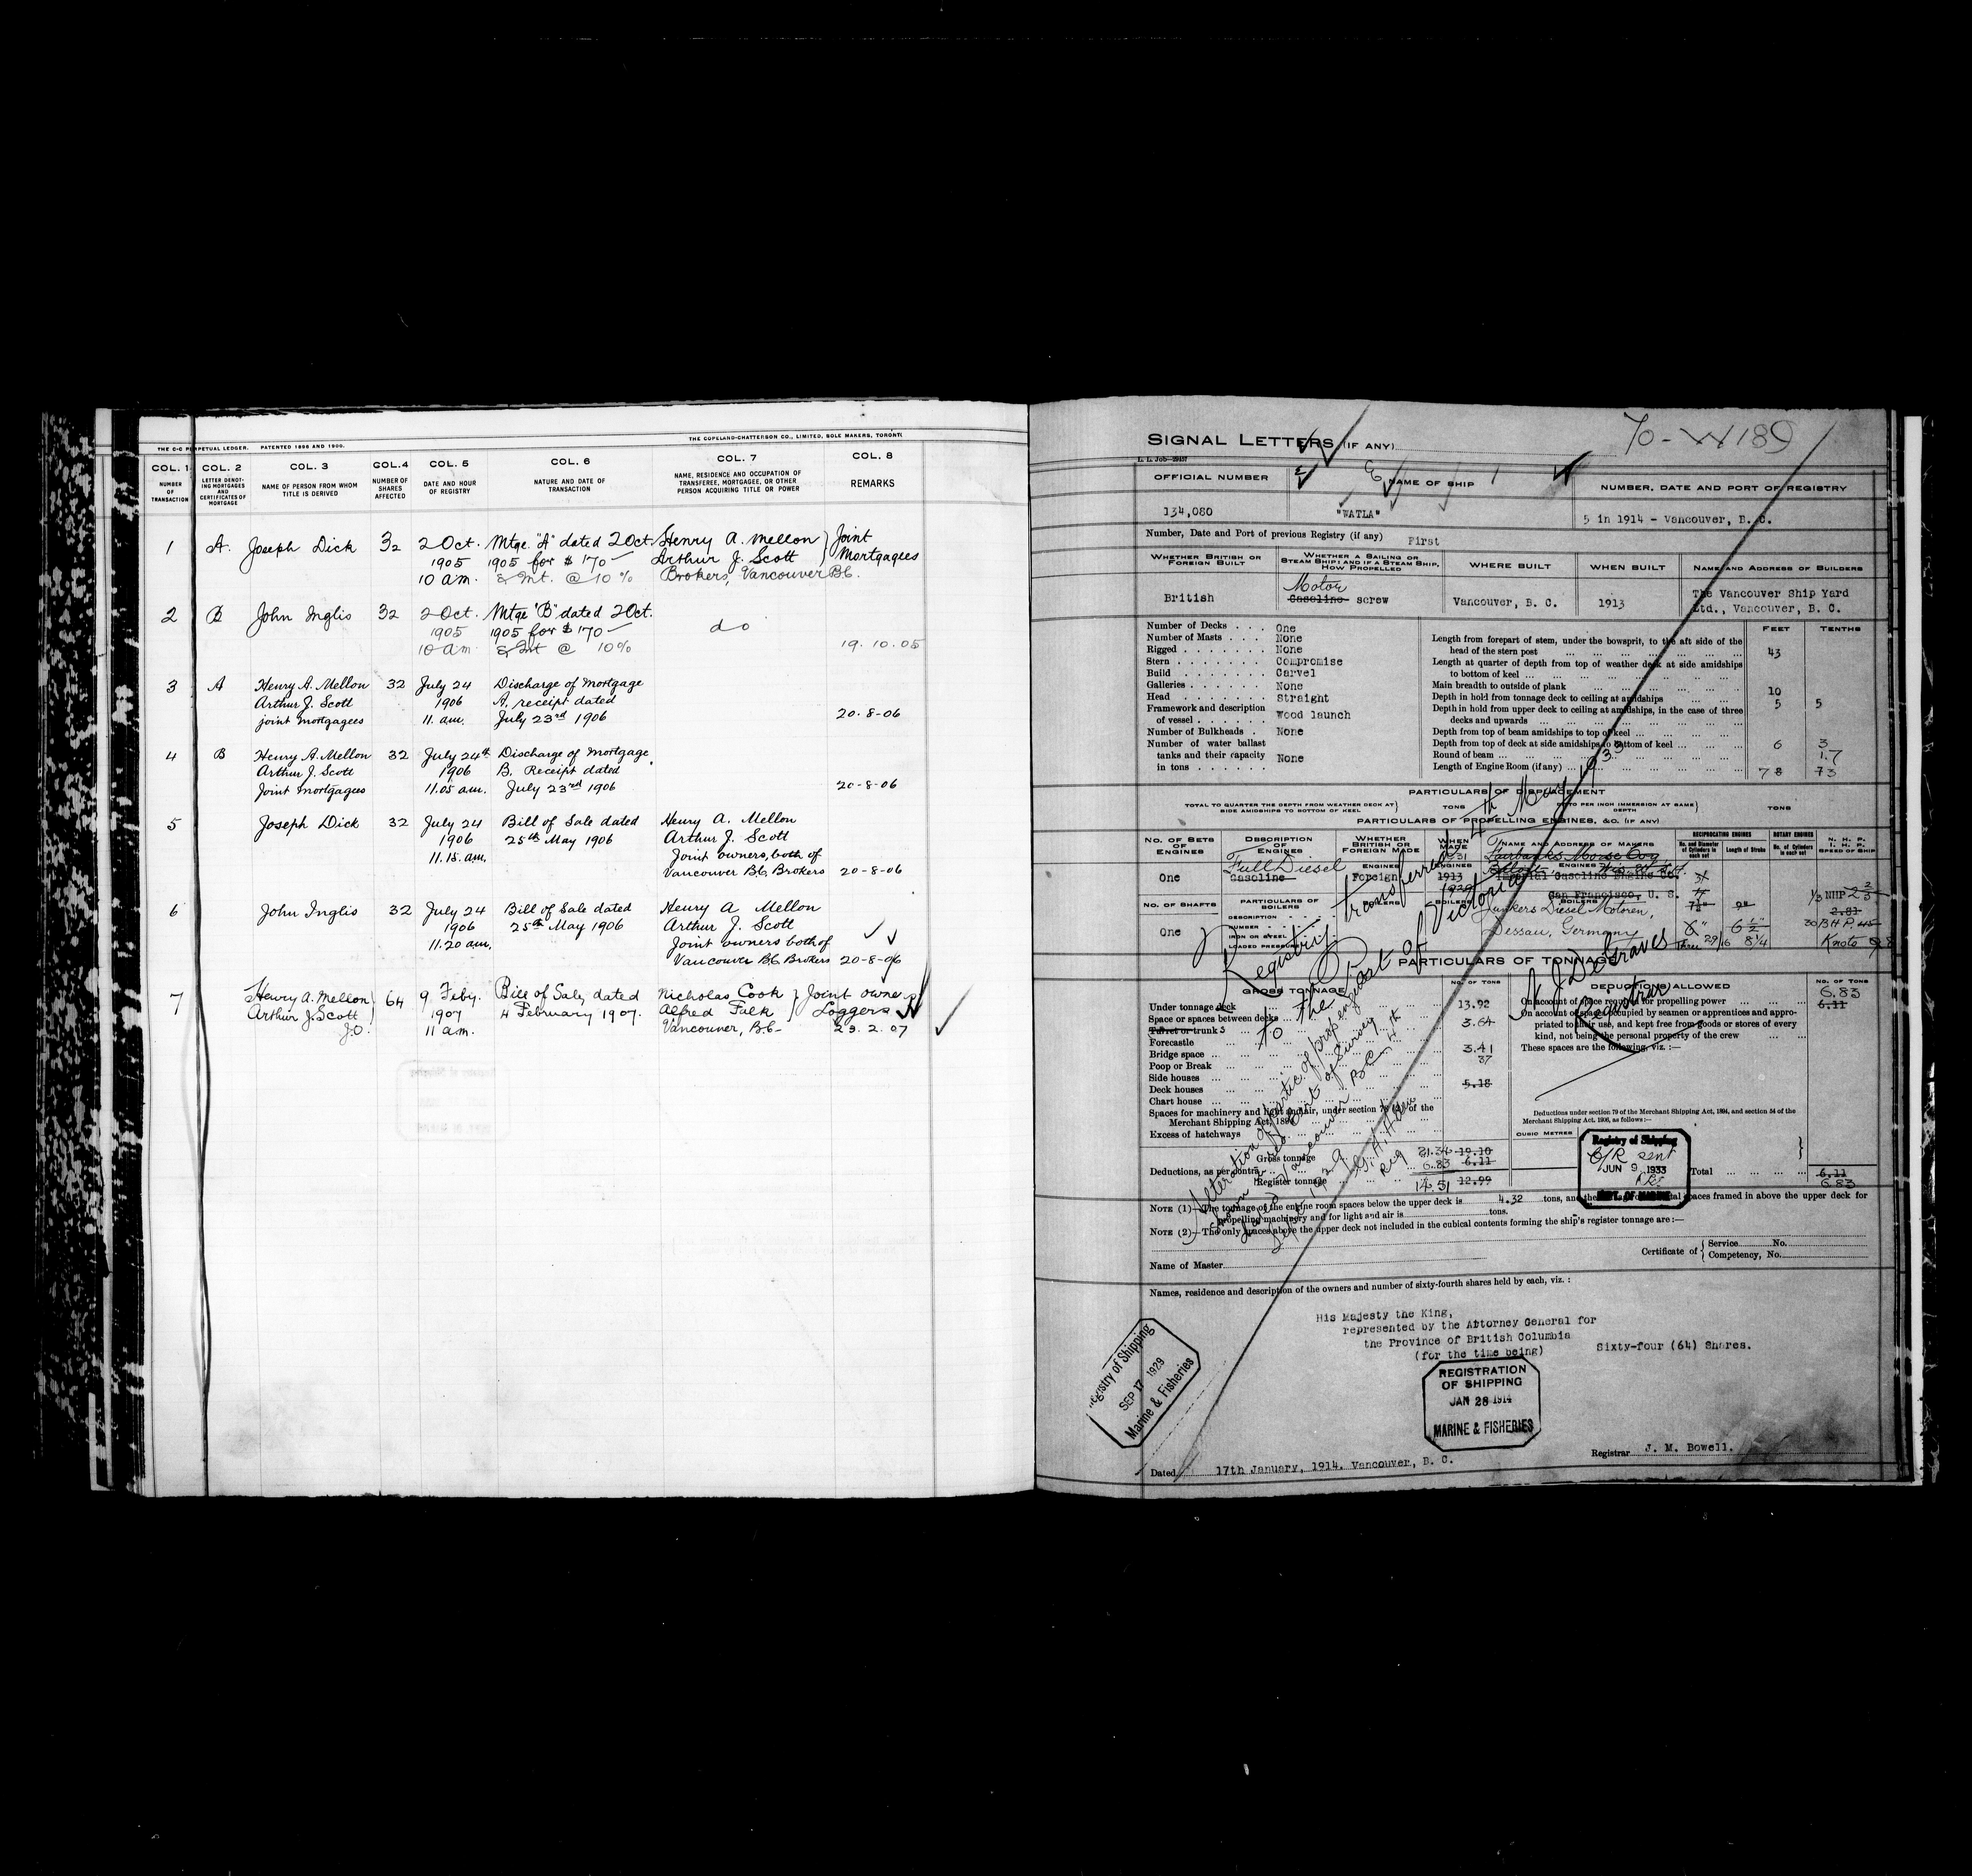 THE C-C PERPETUAL LEDGER. PATENTED 1896 AND 1900.
THE COPELAND-CHATTERSON CO., LIMITED, SOLE MAKERS, TORONTO
COL. 1 COL. 2 COL. 3 COL. 4 COL. 5 COL. 6 COL. 7 COL. 8
NUMBER OF TRANSACTION
LETTER DENOTING MORTGAGES AND CERTIFICATES OF MORTGAGE
NAME OF PERSON FROM WHOM TITLE IS DERIVED
NUMBER OF SHARES AFFECTED
DATE AND HOUR OF REGISTRY
NATURE AND DATE OF TRANSACTION
NAME, RESIDENCE AND OCCUPATION OF TRANSFEREE, MORTGAGEE, OR OTHER PERSON ACQUIRING TITLE OR POWER
REMARKS
1 A. Joseph Dick 32 2 Oct. Mtge. "A" dated 2 Oct. Henry A. Mellon Joint
1905 1905 for $170— Arthur J. Scott Mortgagees
10 am. & Int. @ 10% Brokers, Vancouver B.C.
2 B John Inglis 32 2 Oct. Mtge "B" dated 2 Oct.
1905 1905 for $170— do
10 am. & Int @ 10% 19.10.05
3 A Henry A. Mellon 32 July 24 Discharge of Mortgage
Arthur J. Scott 1906 A, receipt dated
joint mortgagees 11. am. July 23rd 1906 20-8-06
4 B Henry A. Mellon 32 July 24th Discharge of Mortgage
Arthur J. Scott 1906 B. Receipt dated
Joint Mortgagees 11.05 a.m. July 23rd 1906 20-8-06
5 Joseph Dick 32 July 24 Bill of Sale dated Henry A. Mellon
1906 25th May 1906 Arthur J. Scott
11.15. am. Joint owners, both of
Vancouver B.C. Brokers 20-8-06
6 John Inglis 32 July 24 Bill of Sale dated Henry A Mellon
1906 25th May 1906 Arthur J. Scott
11.20 am. Joint owners both of
Vancouver B.C. Brokers 20-8-06
7 Henry A. Mellon 64 9 Feby. Bill of Sale, dated Nicholas Cook Joint owners
Arthur J. Scott 1907 4 February 1907. Alfred Falk Loggers
J.O. 11 am. Vancouver, B.C- 23.2.07
SIGNAL LETTERS (IF ANY)
To - W 189
L. L. Job
OFFICIAL NUMBER NAME OF SHIP NUMBER, DATE AND PORT OF REGISTRY
134,080 "WATLA" 5 in 1914 - Vancouver, B. C.
Number, Date and Port of previous Registry (if any) First
WHETHER BRITISH OR FOREIGN BUILT
WHETHER A SAILING OR STEAM SHIP; AND IF A STEAM SHIP, HOW PROPELLED
WHERE BUILT
WHEN BUILT
NAME AND ADDRESS OF BUILDERS
Motor
British Gasoline screw Vancouver, B. C. 1913 The Vancouver Ship Yard
Ltd., Vancouver, B. C.
FEET TENTHS
Number of Decks One
Number of Masts None
Rigged None
Stern Compromise
Build Carvel
Galleries None
Head Straight
Framework and description of vessel Wood launch
Number of Bulkheads None
Number of water ballast tanks and their capacity in tons None
Length from forepart of stem, under the bowsprit, to the aft side of the head of the stern post 43
Length at quarter of depth from top of weather deck at side amidships to bottom of keel
Main breadth to outside of plank 10
Depth in hold from tonnage deck to ceiling at amidships 5 5
Depth in hold from upper deck to ceiling at amidships, in the case of three decks and upwards
Depth from top of beam amidships to top of keel
Depth from top of deck at side amidships to bottom of keel 6 3
Round of beam 1.7
Length of Engine Room (if any)
PARTICULARS OF DISPLACEMENT
TOTAL TO QUARTER THE DEPTH FROM WEATHER DECK AT SIDE AMIDSHIPS TO BOTTOM OF KEEL TONS DITTO PER INCH IMMERSION AT SAME DEPTH TONS
PARTICULARS OF PROPELLING ENGINES, &C. (IF ANY)
NO. OF SETS OF ENGINES
DESCRIPTION OF ENGINES
WHETHER BRITISH OR FOREIGN MADE
WHEN MADE
NAME AND ADDRESS OF MAKERS
RECIPROCATING ENGINES
No. and Diameter of Cylinders in each set
Length of Stroke
ROTARY ENGINES
No. of Cylinders in each set
N. H. P.
I. H. P.
SPEED OF SHIP
Full Diesel 1931 Fairbanks Morse Co
One Gasoline Foreign 1913 Imperial Gasoline Engine Co.
1929 San Francisco, U. S.
NO. OF SHAFTS PARTICULARS OF BOILERS
Junkers Diesel Motoren,
One Dessau, Germany
DESCRIPTION
NUMBER
IRON OR STEEL
LOADED PRESSURE
Three 8 1/4
Registry transferred 4th May 1933
to the Port of Victoria
N J DeGraves
Registrar
PARTICULARS OF TONNAGE
GROSS TONNAGE NO. OF TONS DEDUCTIONS ALLOWED NO. OF TONS
6.83
Under tonnage deck 13.92 On account of space required for propelling power 6.11
Space or spaces between decks
On account of space occupied by seamen or apprentices and appropriated to their use, and kept free from goods or stores of every kind, not being the personal property of the crew
Turret or trunk 3.64
Forecastle
These spaces are the following, viz.:—
Bridge space 3.41
Poop or Break 37
Side houses
Deck houses 5.18
Chart house
Spaces for machinery and light and air, under section 78 (2) of the Merchant Shipping Act, 1894
Excess of hatchways
Deductions under section 79 of the Merchant Shipping Act, 1894, and section 54 of the Merchant Shipping Act, 1906, as follows:—
CUBIC METRES
Gross tonnage 21.34 19.10
Deductions, as per contra 6.83 6.11
Register tonnage 14.51 12.99
Total 6.11
6.83
Alteration of partic of prop engines
Vancouver BC 4th
Sept 1929
Reg
Registry of Shipping
C/R sent
JUN 9 1933
DEPT. OF MARINE
NOTE (1)—The tonnage of the engine room spaces below the upper deck is 4.32 tons, and the total spaces framed in above the upper deck for propelling machinery and for light and air is tons.
NOTE (2)—The only spaces above the upper deck not included in the cubical contents forming the ship's register tonnage are:—
Name of Master
Certificate of { Service No.
Competency, No.
Names, residence and description of the owners and number of sixty-fourth shares held by each, viz.:
His Majesty the King,
represented by the Attorney General for
the Province of British Columbia
(for the time being) Sixty-four (64) Shares.
Registry of Shipping
SEP 17 1929
Marine & Fisheries
REGISTRATION
OF SHIPPING
JAN 28 1914
MARINE & FISHERIES
Registrar J. M. Bowell.
Dated 17th January, 1914. Vancouver, B. C.